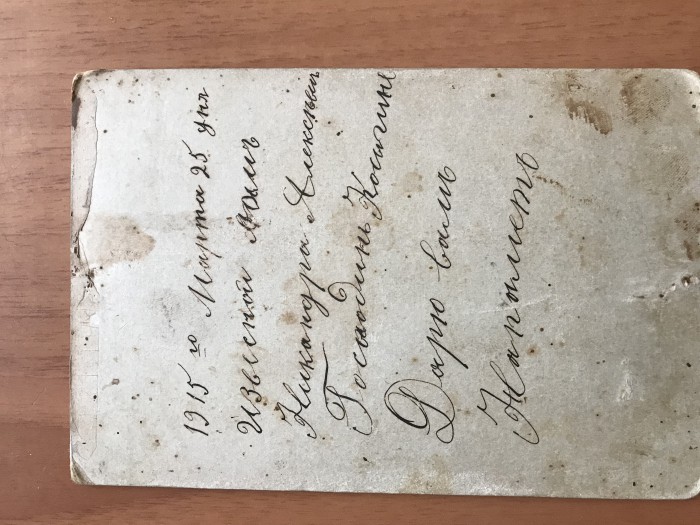 1915 го Марта 25 дня
Изъсной Вамъ
Никандра Алексѣвы
Господинъ Косыгине
Дарю вамъ
На